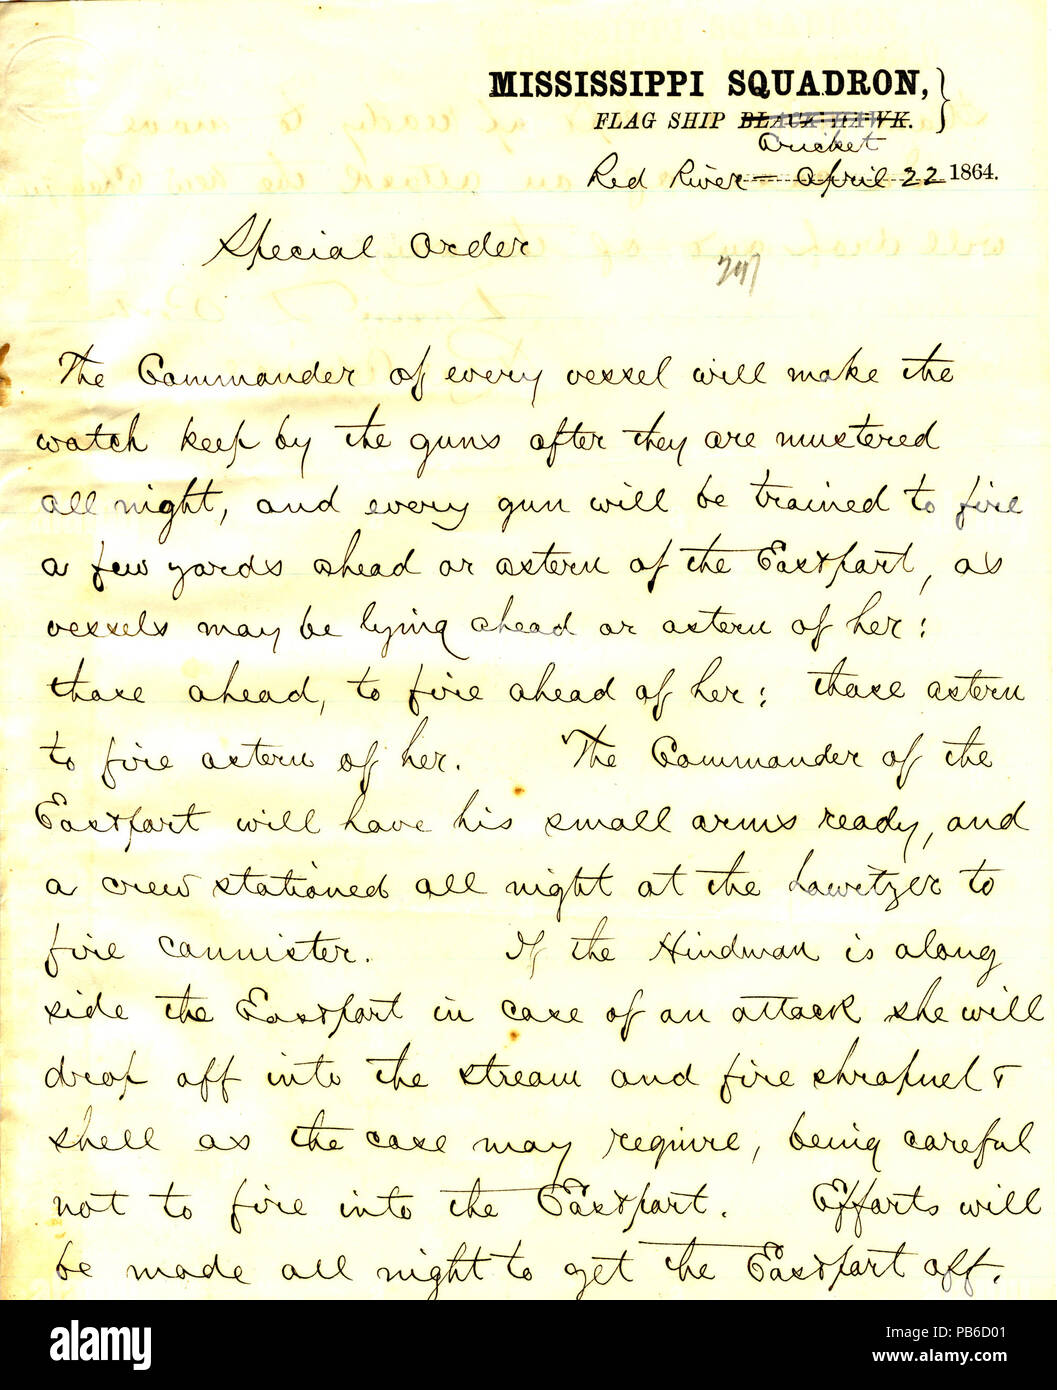 MISSISSIPPI SQUADRON,
FLAG SHIP BLACK HAWK.
Cricket
Red River — April 22 1864.
Special Order
The Commander of every vessel will make the
watch keep by the guns after they are mustered
all night, and every gun will be trained to fire
a few yards ahead or astern of the Eastport, as
vessels may be lying ahead or astern of her:
those ahead, to fire ahead of her: those astern
to fire astern of her. The Commander of the
Eastport will have his small arms ready, and
a crew stationed all night at the howitzer to
fire cannister. If the Hindman is along
side the Eastport in case of an attack she will
drop off into the stream and fire shrapnel &
shell as the case may require, being careful
not to fire into the Eastport. Efforts will
be made all night to get the Eastport off.
alamy stock photo
PB6D01
www.alamy.com